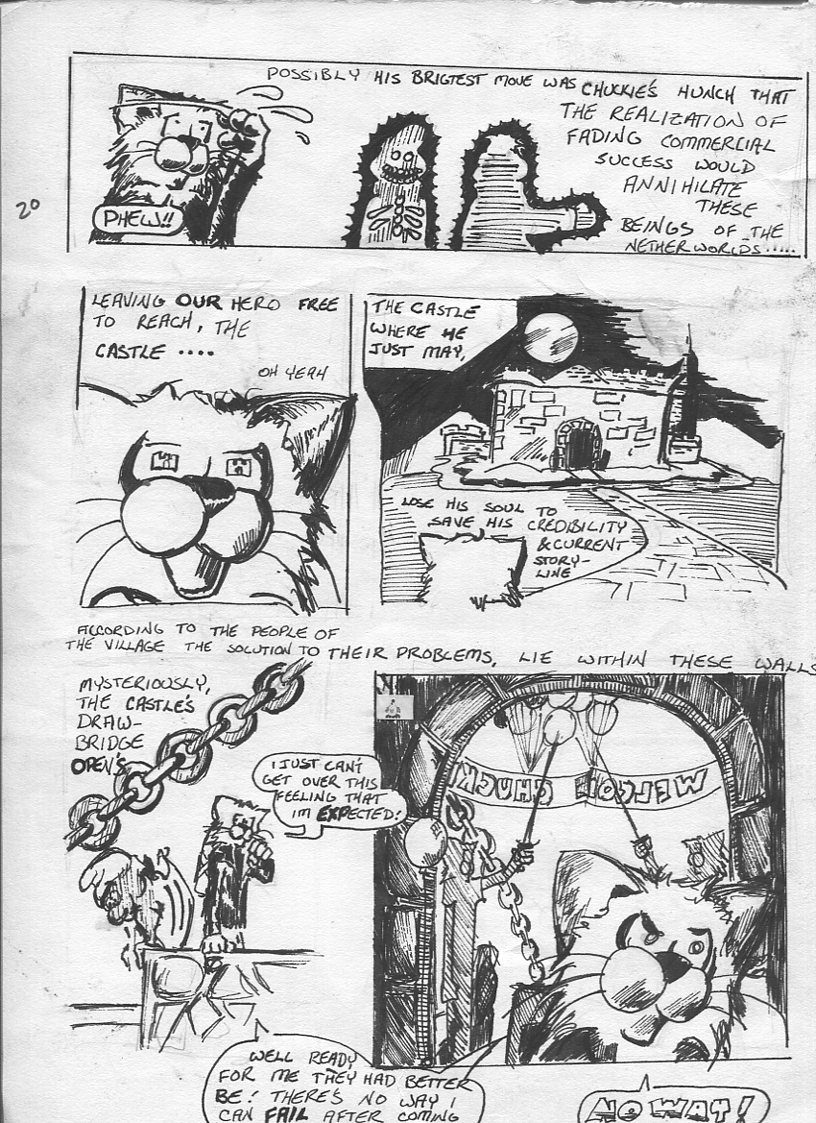 POSSIBLY HIS BRIGTEST MOVE WAS CHUCKIE'S HUNCH THAT
THE REALIZATION OF
FADING COMMERCIAL
SUCCESS WOULD
ANNIHILATE
THESE
BEINGS OF THE
NETHERWORLDS.....
20
PHEW!!
LEAVING OUR HERO FREE
TO REACH, THE
CASTLE ....
OH YEAH
THE CASTLE
WHERE HE
JUST MAY,
LOSE HIS SOUL TO
SAVE HIS CREDIBILITY
& CURRENT
STORY-
LINE
ACCORDING TO THE PEOPLE OF
THE VILLAGE THE SOLUTION TO THEIR PROBLEMS, LIE WITHIN THESE WALLS
MYSTERIOUSLY,
THE CASTLE'S
DRAW-
BRIDGE
OPEN'S
I JUST CAN'T
GET OVER THIS
FEELING THAT
IM EXPECTED!
WELCOME CHUCK
WELL READY
FOR ME THEY HAD BETTER
BE! THERE'S NO WAY I
CAN FAIL AFTER COMING
NO WAY!